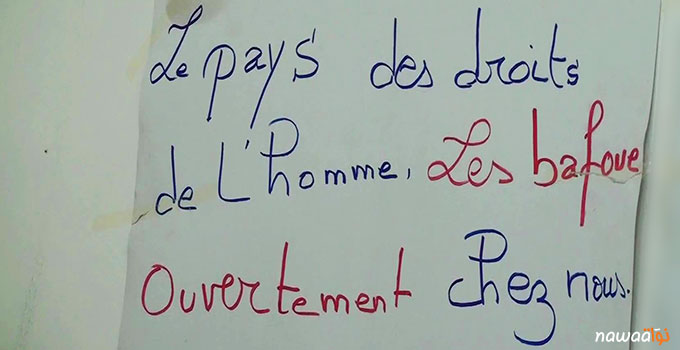 Le pays des droits
de L'homme, Les bafoue
Ouvertement Chez nous.
nawaaنواة